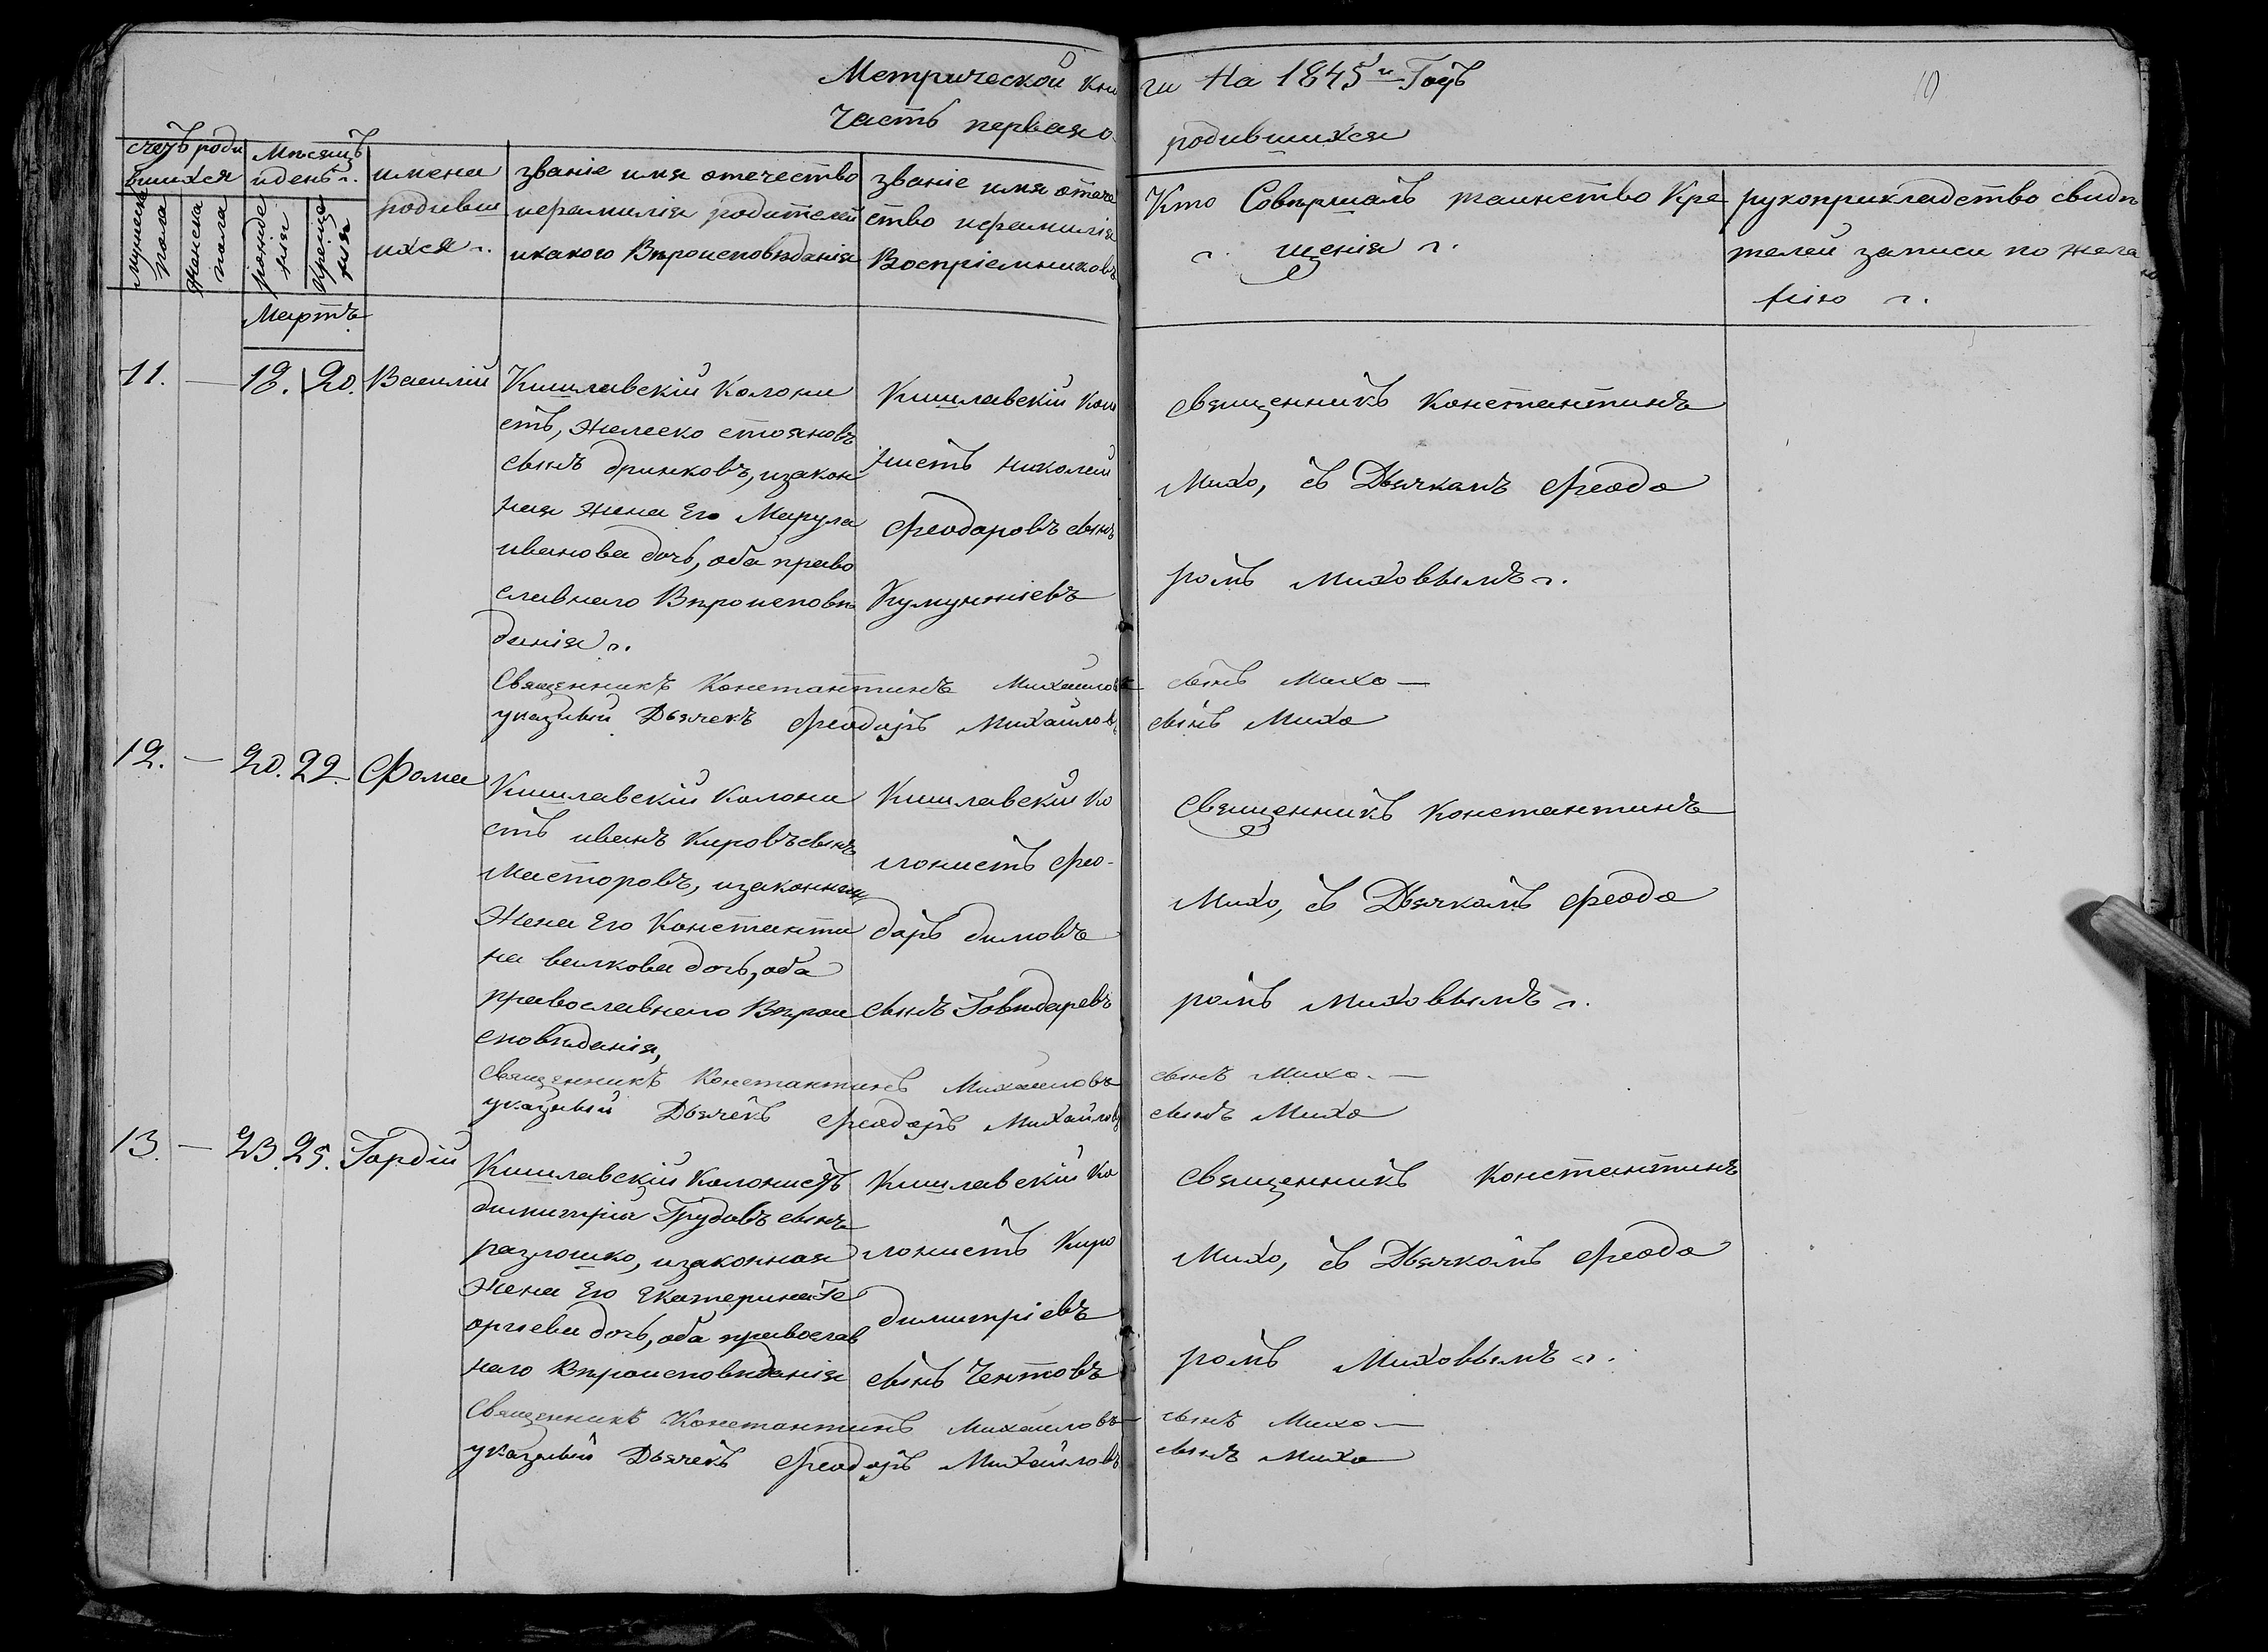 Метрической кни
ги на 1845й Годъ
10
Часть первая о
родившихся
счетъ роди
вшихся
Мѣсяцъ
и день
имена
родивш
ихся
званіе имя отечество
ифамилія родителей
икакого Вѣроисповѣданія
званіе имя отече
ство ифамилія
Воспріемниковъ
Кто Совѣршалъ таинство Кре
щенія
рукоприкладство свидѣ
телей записи по жела
нію
мужеска
пола
женска
пола
рожде
нія
креще
нія
Мартъ
11. — 18. 20. Василій
Кишлавскій Колони
стъ, Желеско стояновъ
сынъ дринковъ, изакон
ная жена Его Марула
иванова дочь, оба право
славнаго Вѣроисповѣ
данія
Кишлавскій Коло
нистъ николай
Феодаровъ сынъ
Кумунжіевъ
священникъ Константинъ
Михо, съ Дьячкамъ Феодо
ромъ Миховымъ
Священникъ Константинъ Михайловъ сынъ Михо —
указный Дьячекъ Феодоръ Михайловъ сынъ Михо
12. — 20. 22. Фома
Кишлавскій Колони
стъ иванъ Кировъ сынъ
Масторовъ, изаконная
Жена Его Константи
на валкова дочь, оба
православнаго Вѣрои
сповѣданія,
Кишлавскій Ко
лонистъ Фео-
даръ димовъ
сынъ Говѣдаревъ
Священникъ Константинъ
Михо, съ Дьячкомъ Феодо
ромъ Миховымъ
Священникъ Константинъ Михайловъ сынъ Михо. —
указный Дьячекъ Феодоръ Михайловъ сынъ Михо
13. — 23. 25. Гордій
Кишлавскій Колонистъ
димитрій Грудовъ сынъ
разлошко, изаконная
Жена Его Екатерина Ге
оргіева дочь, оба православ
наго Вѣроисповѣданія
Кишлавскій Ко
лонистъ Киро
димитріевъ
сынъ Чентовъ
Священникъ Константинъ
Михо, съ Дьячкомъ Феодо
ромъ Миховымъ
Священникъ Константинъ Михайловъ — сынъ Михо —
указный Дьячекъ Феодоръ Михайловъ сынъ Михо